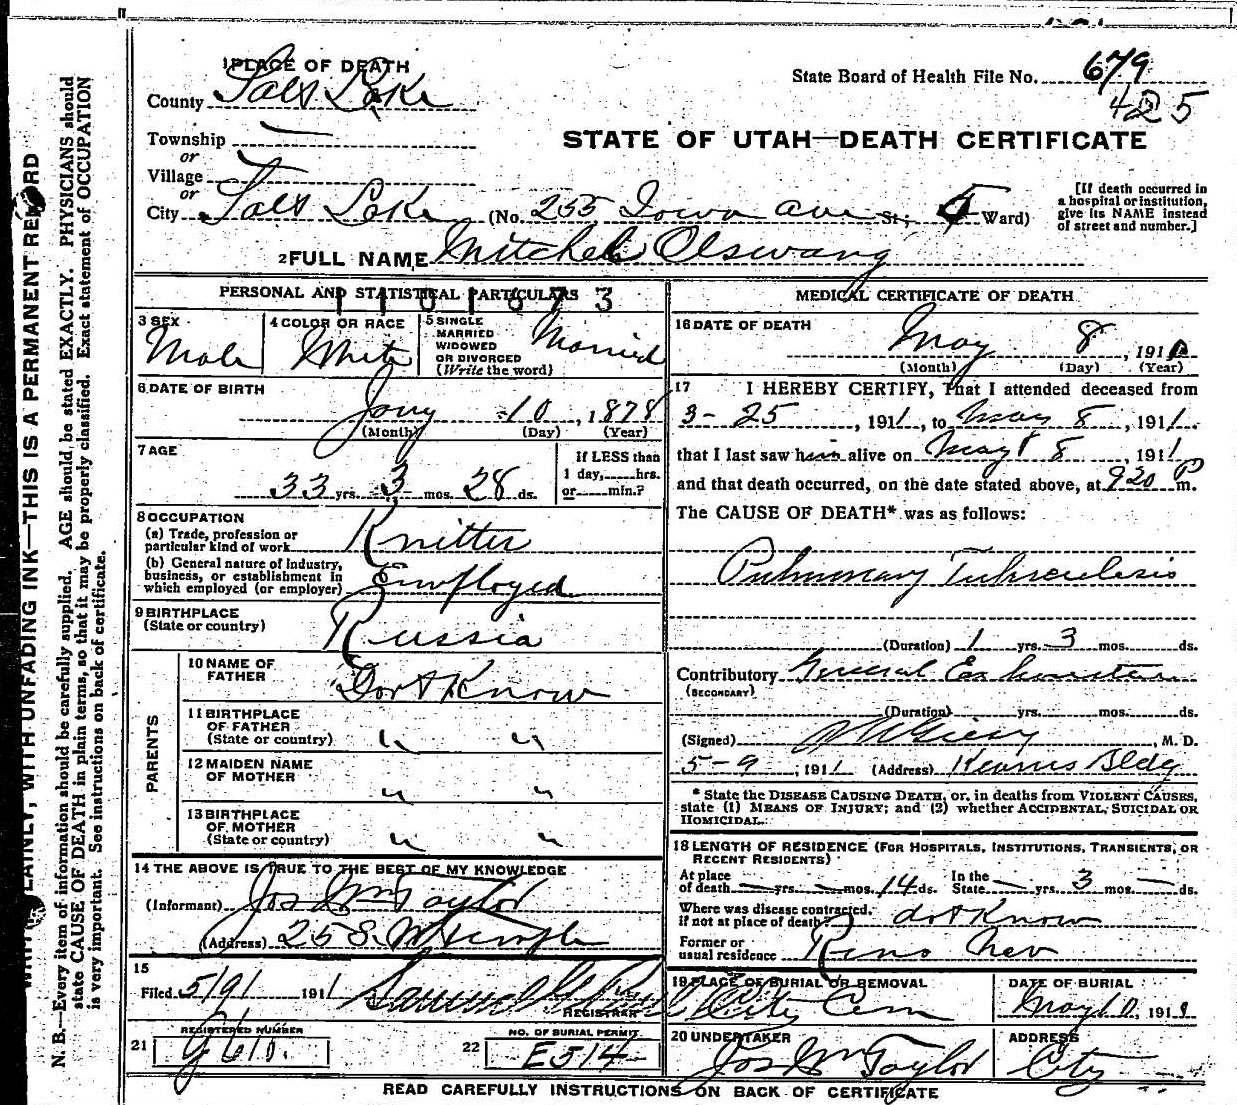 1 PLACE OF DEATH
State Board of Health File No. 679
425
County Salt Lake
Township
or
Village
or
STATE OF UTAH—DEATH CERTIFICATE
City Salt Lake (No. 255 Iowa Ave St; 5 Ward)
[If death occurred in a hospital or institution, give its NAME instead of street and number.]
2 FULL NAME Mitchel Olswang
PERSONAL AND STATISTICAL PARTICULARS
1101673
3 SEX Male
4 COLOR OR RACE White
5 SINGLE MARRIED WIDOWED OR DIVORCED (Write the word) Married
6 DATE OF BIRTH Jany 10, 1878
(Month) (Day) (Year)
7 AGE 33 yrs. 3 mos. 28 ds.
If LESS than 1 day, hrs. or min.?
8 OCCUPATION
(a) Trade, profession or particular kind of work Knitter
(b) General nature of Industry, business, or establishment in which employed (or employer) Employed
9 BIRTHPLACE (State or country) Russia
PARENTS
10 NAME OF FATHER Dont Know
11 BIRTHPLACE OF FATHER (State or country) " "
12 MAIDEN NAME OF MOTHER " "
13 BIRTHPLACE OF MOTHER (State or country) " "
14 THE ABOVE IS TRUE TO THE BEST OF MY KNOWLEDGE
(Informant) Jos Wm Taylor
(Address) 25 S. W Temple
15
Filed 5/9 1911 Samuel G
REGISTRAR
21 REGISTERED NUMBER
22 NO. OF BURIAL PERMIT E514
MEDICAL CERTIFICATE OF DEATH
16 DATE OF DEATH May 8, 1911
(Month) (Day) (Year)
17 I HEREBY CERTIFY, That I attended deceased from
3-25, 1911, to May 8, 1911.
that I last saw him alive on May 8, 1911
and that death occurred, on the date stated above, at 920 P m.
The CAUSE OF DEATH* was as follows:
Pulmonary Tuberculosis
(Duration) 1 yrs. 3 mos. ds.
Contributory General Exhaustion
(SECONDARY)
(Duration) yrs. mos. ds.
(Signed) M. D.
5-9, 1911 (Address) Kearns Bldg
* State the DISEASE CAUSING DEATH, or, in deaths from VIOLENT CAUSES, state (1) MEANS OF INJURY; and (2) whether ACCIDENTAL, SUICIDAL OR HOMICIDAL.
18 LENGTH OF RESIDENCE (FOR HOSPITALS, INSTITUTIONS, TRANSIENTS, OR RECENT RESIDENTS)
At place of death — yrs. — mos. 14 ds. In the State — yrs. 3 mos. — ds.
Where was disease contracted, if not at place of death? dont Know
Former or usual residence Reno Nev
19 PLACE OF BURIAL OR REMOVAL City Cem
DATE OF BURIAL May 10, 1911
20 UNDERTAKER Jos Wm Taylor
ADDRESS City
READ CAREFULLY INSTRUCTIONS ON BACK OF CERTIFICATE
PLAINLY, WITH UNFADING INK—THIS IS A PERMANENT RECORD
N. B.—Every item of information should be carefully supplied. AGE should be stated EXACTLY. PHYSICIANS should
state CAUSE OF DEATH in plain terms, so that it may be properly classified. Exact statement of OCCUPATION
is very important. See instructions on back of certificate.